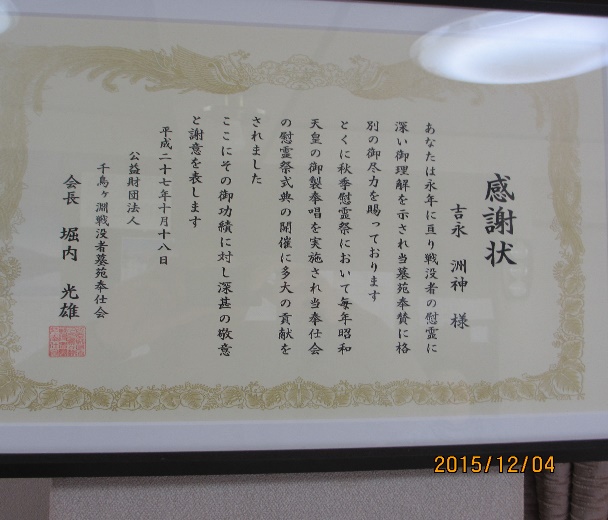 感謝状
吉永 洲神 様
あなたは永年に亘り戦没者の慰霊に
深い御理解を示され当墓苑奉賛に格
別の御尽力を賜っております
とくに秋季慰霊祭において毎年昭和
天皇の御製奉唱を実施され当奉仕会
の慰霊祭式典の開催に多大の貢献を
されました
ここにその御功績に対し深甚の敬意
と謝意を表します
平成二十七年十月十八日
公益財団法人
千鳥ヶ淵戦没者墓苑奉仕会
会長 堀内 光雄
2015/12/04